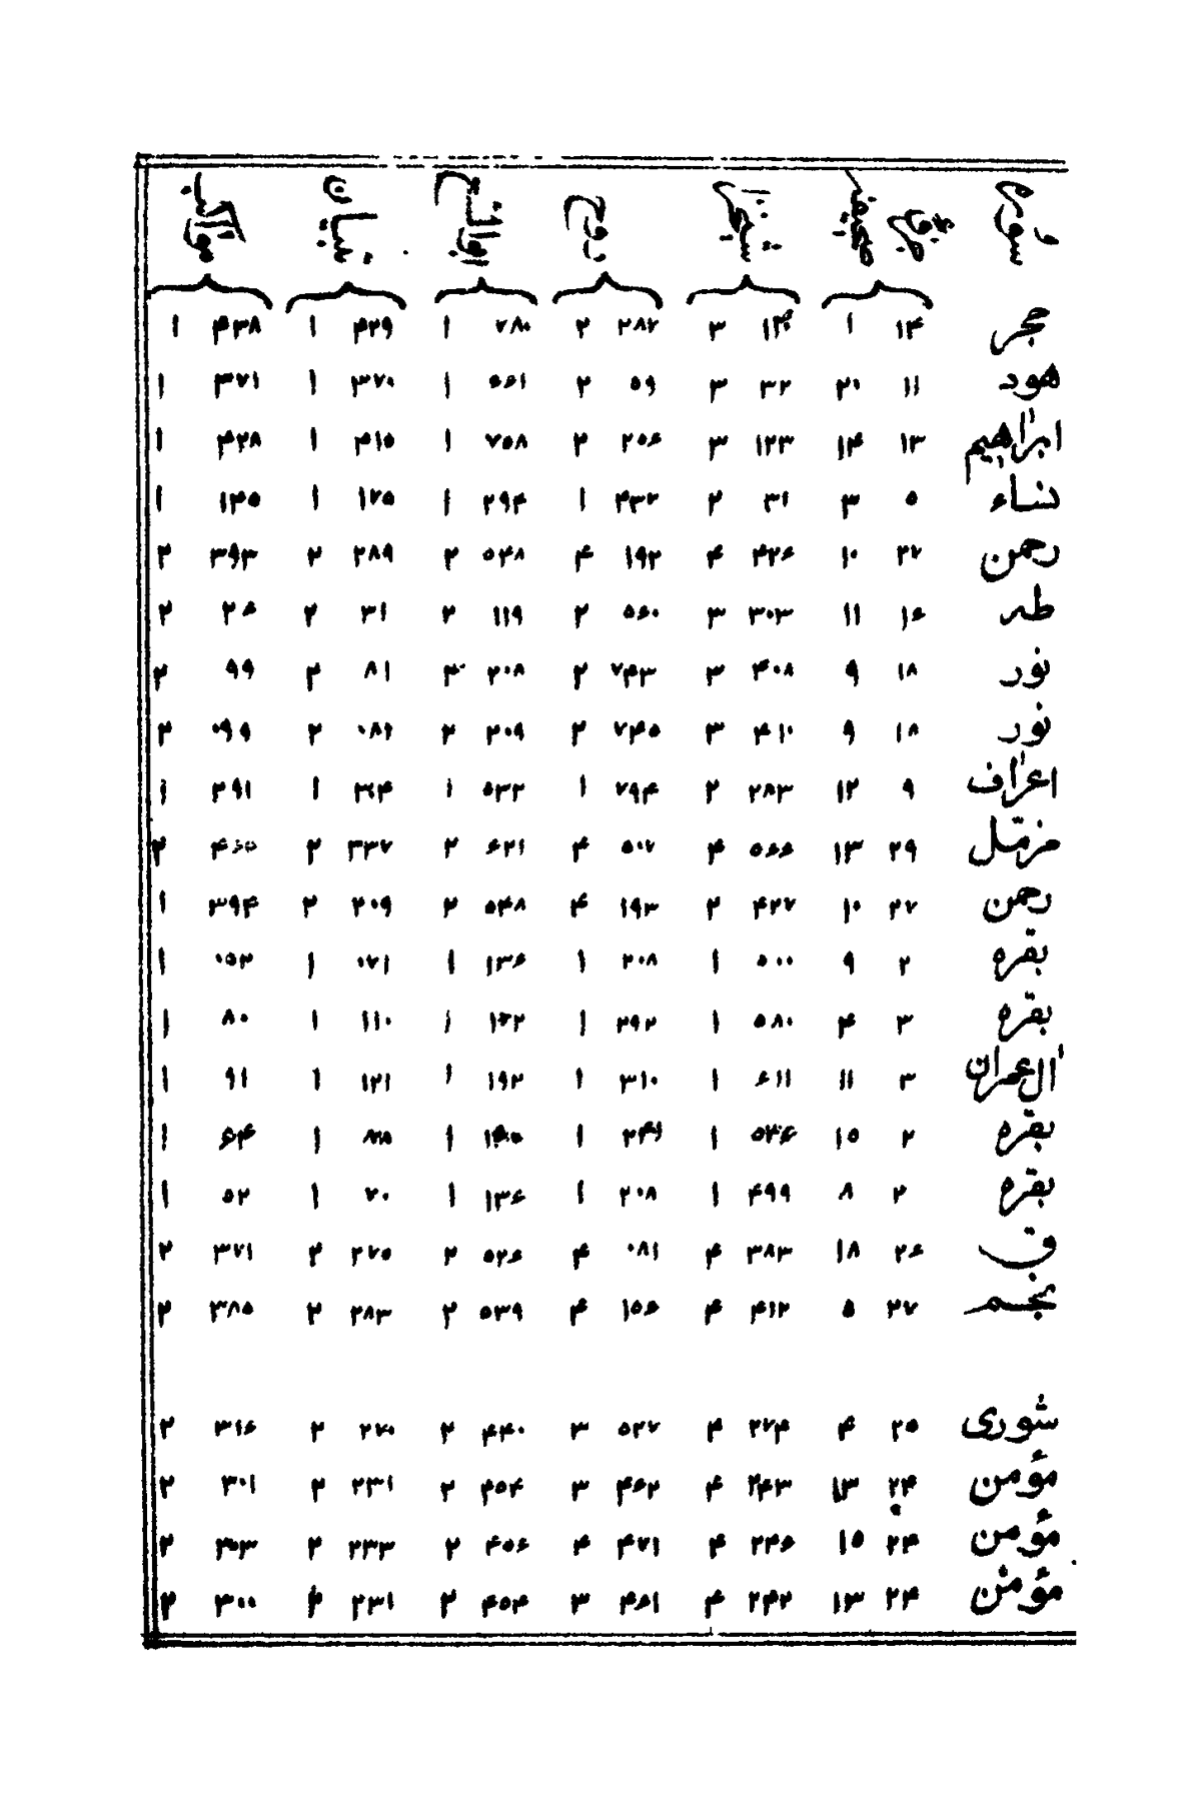 سوره جزو صحیفه روح ابوالفتوح تبیان
حجر ۱۴ ۱ ۳ ۲۸۷ ۲ ۷۸۰ ۱ ۴۲۹ ۱ ۴۳۸ ۱
هود ۱۱ ۲۰ ۳۲ ۳ ۵۹ ۲ ۶۶۱ ۱ ۳۷۰ ۱ ۳۷۱ ۱
ابراهیم ۱۳ ۱۴ ۱۲۳ ۳ ۲۰۶ ۲ ۷۵۸ ۱ ۴۱۵ ۱ ۴۲۸ ۱
نساء ۵ ۳ ۳۱ ۲ ۴۳۲ ۱ ۲۹۴ ۱ ۱۷۵ ۱ ۱۴۵ ۱
رحمن ۲۷ ۱۰ ۴۲۶ ۴ ۱۹۲ ۴ ۵۴۸ ۲ ۲۸۹ ۲ ۳۹۳ ۲
طه ۱۶ ۱۱ ۳۰۳ ۳ ۵۶۰ ۲ ۱۱۹ ۲ ۳۱ ۲ ۲۶ ۲
نور ۱۸ ۹ ۴۰۸ ۳ ۷۴۳ ۲ ۲۰۸ ۲ ۸۱ ۲ ۹۹ ۲
نور ۱۸ ۹ ۴۱۰ ۳ ۷۴۵ ۲ ۲۰۹ ۲ ۰۸۲ ۲ ۰۹۹ ۲
اعراف ۹ ۱۲ ۲۸۳ ۲ ۷۹۴ ۱ ۵۳۲ ۱ ۱ ۲۹۱ ۱
مزمّل ۲۹ ۱۳ ۵۶۶ ۴ ۵۰۷ ۴ ۶۲۱ ۲ ۳۳۷ ۲ ۲
رحمن ۲۷ ۱۰ ۴۲۷ ۲ ۱۹۳ ۴ ۵۴۸ ۲ ۲۰۹ ۲ ۳۹۴ ۱
بقره ۲ ۹ ۵۰۰ ۱ ۲۰۸ ۱ ۱۳۶ ۱ ۰۷۱ ۱ ۰۵۲ ۱
بقره ۳ ۴ ۵۸۰ ۱ ۲۹۲ ۱ ۱ ۱۱۰ ۱ ۸۰ ۱
آل عمران ۳ ۱۱ ۶۱۱ ۱ ۳۱۰ ۱ ۱۹۲ ۱ ۱۲۱ ۱ ۹۱ ۱
بقره ۲ ۱۵ ۵۴۶ ۱ ۲۴۹ ۱ ۱ ۱ ۶۴ ۱
بقره ۲ ۸ ۴۹۹ ۱ ۲۰۸ ۱ ۱۳۶ ۱ ۷۰ ۱ ۵۲ ۱
ق ۲۶ ۱۸ ۳۸۳ ۴ ۰۸۱ ۴ ۵۲۶ ۲ ۲۷۵ ۲ ۳۷۱ ۲
نجم ۲۷ ۵ ۴۱۲ ۴ ۱۵۶ ۴ ۵۳۹ ۲ ۲۸۳ ۲ ۳۸۵ ۲
شوری ۲۵ ۴ ۲۷۴ ۴ ۵۲۷ ۳ ۴۴۰ ۲ ۲۷۰ ۲ ۳۱۶ ۲
مؤمن ۲۴ ۱۳ ۲۴۳ ۴ ۴۶۲ ۳ ۴۵۴ ۲ ۲۳۱ ۲ ۳۰۱ ۲
مؤمن ۲۴ ۱۵ ۲۴۶ ۴ ۴۷۱ ۴ ۴۵۶ ۲ ۲۳۳ ۲ ۳۰۳ ۲
مؤمن ۲۴ ۱۳ ۲۴۲ ۴ ۴۶۱ ۳ ۴۵۴ ۲ ۲۳۱ ۲ ۳۰۰ ۲